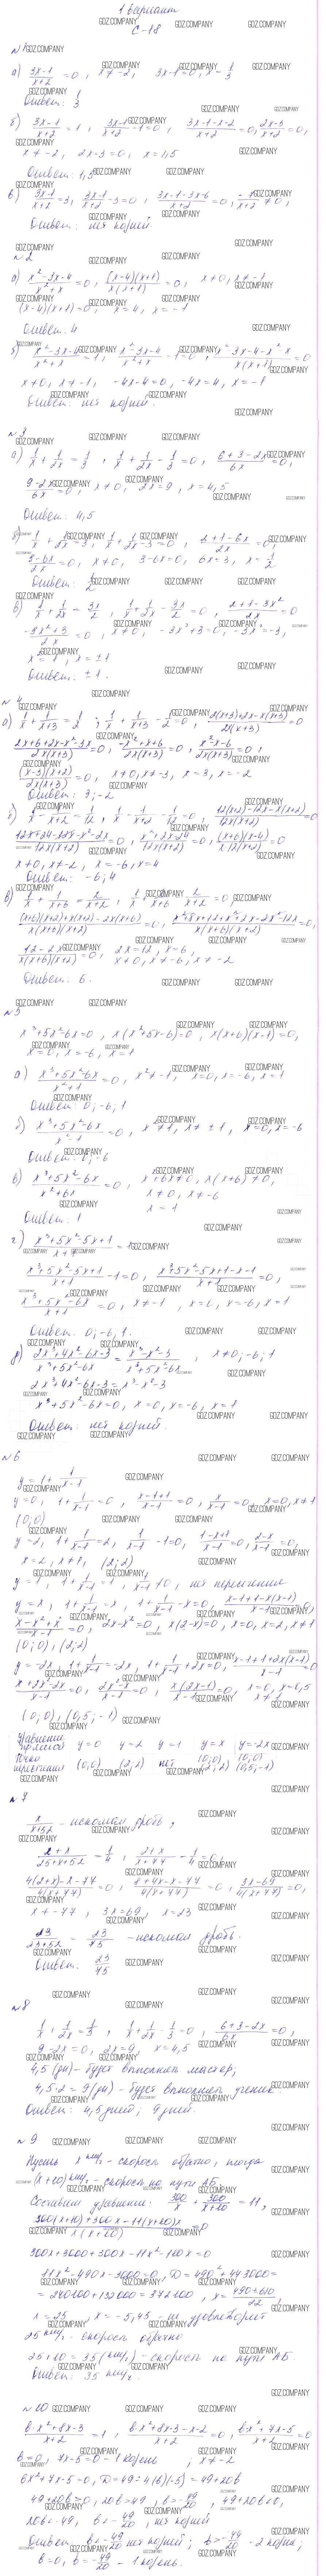 1 вариант
С-18
№1
а) (3x-1)/(x+2) = 0, x ≠ -2, 3x-1=0, x = 1/3
Ответ: 1/3
б) (3x-1)/(x+2) = 1, (3x-1)/(x+2) - 1 = 0, (3x-1-x-2)/(x+2) = 0, (2x-3)/(x+2) = 0,
x ≠ -2, 2x-3=0, x=1,5
Ответ: 1,5
в) (3x-1)/(x+2) = 3, (3x-1)/(x+2) - 3 = 0, (3x-1-3x-6)/(x+2) = 0, -7/(x+2) ≠ 0,
Ответ: нет корней.
№2
а) (x²-3x-4)/(x²+x) = 0, (x-4)(x+1)/(x(x+1)) = 0, x ≠ 0, x ≠ -1
(x-4)(x+1)=0, x=4, x=-1
Ответ: 4
б) (x²-3x-4)/(x²+x) = 1, (x²-3x-4)/(x²+x) - 1 = 0, (x²-3x-4-x²-x)/(x(x+1)) = 0
x≠0, x≠-1, -4x-4=0, -4x=4, x=-1
Ответ: нет корней.
№3
а) 1/x + 1/2x = 1/3, 1/x + 1/2x - 1/3 = 0, (6+3-2x)/6x = 0,
(9-2x)/6x = 0, x≠0, 2x=9, x=4,5
Ответ: 4,5
б) 1/x + 1/2x = 3, 1/x + 1/2x - 3 = 0, (2+1-6x)/2x = 0,
(3-6x)/2x = 0, x≠0, 3-6x=0, 6x=3, x=1/2
Ответ: 1/2
в) 1/x + 1/2x = 3x/2, 1/x + 1/2x - 3x/2 = 0, (2+1-3x²)/2x = 0
(-3x²+3)/2x = 0, x≠0, -3x²+3=0, -3x²=-3,
x²=1, x=±1
Ответ: ±1.
№4
а) 1/x + 1/(x+3) = 1/2; 1/x + 1/(x+3) - 1/2 = 0, (2(x+3)+2x-x(x+3))/(2x(x+3)) = 0
(2x+6+2x-x²-3x)/(2x(x+3)) = 0, (-x²+x+6)/(2x(x+3)) = 0, (x²-x-6)/(2x(x+3)) = 0,
(x-3)(x+2)/(2x(x+3)) = 0, x≠0, x≠-3, x=3, x=-2
Ответ: 3; -2
б) 1/x - 1/(x+2) = 1/12, 1/x - 1/(x+2) - 1/12 = 0, (12(x+2)-12x-x(x+2))/(12x(x+2)) = 0
(12x+24-12x-x²-2x)/(12x(x+2)) = 0, (x²+2x-24)/(12x(x+2)) = 0, (x+6)(x-4)/(x12(x+2)) = 0
x≠0, x≠-2, x=-6, x=4
Ответ: -6; 4
в) 1/x + 1/(x+6) = 2/(x+2), 1/x + 1/(x+6) - 2/(x+2) = 0,
((x+6)(x+2)+x(x+2)-2x(x+6))/(x(x+6)(x+2)) = 0, (x²+8x+12+x²+2x-2x²-12x)/(x(x+6)(x+2)) = 0,
(12-2x)/(x(x+6)(x+2)) = 0, 2x=12, x=6,
x≠0, x≠-6, x≠-2
Ответ: 6.
№5
x³+5x²-6x=0, x(x²+5x-6)=0, x(x+6)(x-1)=0,
x=0, x=-6, x=1
а) (x³+5x²-6x)/(x²+1) = 0, x²≠-1, x=0, x=-6, x=1
Ответ: 0; -6; 1
б) (x³+5x²-6x)/(x²-1) = 0, x²≠1, x≠±1, x=0, x=-6
Ответ: 0; -6
в) (x³+5x²-6x)/(x²+6x) = 0, x²+6x≠0, x(x+6)≠0,
x≠0, x≠-6
x=1
Ответ: 1
г) (x³+5x²-5x+1)/(x+1) = 1
(x³+5x²-5x+1)/(x+1) - 1 = 0, (x³+5x²-5x+1-x-1)/(x+1) = 0,
(x³+5x²-6x)/(x+1) = 0, x≠-1, x=0, x=-6, x=1
Ответ: 0; -6; 1.
д) (2x³+4x²-6x-3)/(x³+5x²-6x) = (x³-x²-3)/(x³+5x²-6x), x≠0; -6; 1
2x³+4x²-6x-3=x³-x²-3
x³+5x²-6x=0, x=0, x=-6, x=1
Ответ: нет корней.
№6
y = 1 + 1/(x-1)
y=0, 1 + 1/(x-1) = 0, (x-1+1)/(x-1) = 0, x/(x-1) = 0, x=0, x≠1
(0;0)
y=2, 1 + 1/(x-1) = 2, 1/(x-1) - 1 = 0, (1-x+1)/(x-1) = 0, (2-x)/(x-1) = 0,
x=2, x≠1, (2;2)
y=1, 1 + 1/(x-1) = 1, 1/(x-1) ≠ 0, нет пересечения
y=x, 1 + 1/(x-1) = x, 1 + 1/(x-1) - x = 0, (x-1+1-x(x-1))/(x-1) = 0,
(x-x²+x)/(x-1) = 0, 2x-x²=0, x(2-x)=0, x=0, x=2, x≠1
(0;0), (2;2)
y=-2x, 1 + 1/(x-1) = -2x, 1 + 1/(x-1) + 2x = 0, (x-1+1+2x(x-1))/(x-1) = 0
(x+2x²-2x)/(x-1) = 0, (2x²-x)/(x-1) = 0, x(2x-1)/(x-1) = 0, x=0, x=0,5
x≠1
(0;0), (0,5; -1)
Уравнение прямой y=0 y=2 y=1 y=x y=-2x
точки пересечения (0;0) (2;2) нет (0;0), (2;2) (0;0) (0,5;-1)
№7
x/(x+52) - искомая дробь,
(2+x)/(25+x+52) = 1/4, (2+x)/(x+77) - 1/4 = 0,
(4(2+x)-x-77)/(4(x+77)) = 0, (8+4x-x-77)/(4(x+77)) = 0, (3x-69)/(4(x+77)) = 0,
x≠-77, 3x=69, x=23
23/(23+52) = 23/75 - искомая дробь.
Ответ: 23/75
№8
1/x + 1/2x = 1/3, 1/x + 1/2x - 1/3 = 0, (6+3-2x)/6x = 0,
9-2x=0, 2x=9, x=4,5
4,5 (дн) - будет выполнять мастер,
4,5·2=9 (дн) - будет выполнять ученик.
Ответ: 4,5 дней, 9 дней.
№9
Пусть x км/ч - скорость обратно, тогда
(x+10) км/ч - скорость на пути АВ.
Составим уравнение: 300/x + 300/(x+10) = 11,
300x+3000+300x-11x²-110x=0
11x²-490x-3000=0,
x=25, x=-5,45 - не удовлетворяет
25 км/ч - скорость обратно
25+10=35 (км/ч) - скорость на пути АВ.
Ответ: 35 км/ч.
№10
(bx²+8x-3)/(x+2) = 1, (bx²+8x-3-x-2)/(x+2) = 0, (bx²+7x-5)/(x+2) = 0
b=0, 7x-5=0 - 1 корень, x≠-2
bx²+7x-5=0, D=49-4(b)(-5)=49+20b
49+20b>0, 20b>-49, b>-49/20, 49+20b<0,
20b<-49, b<-49/20, нет корней
Ответ: b<-49/20 нет корней; b>-49/20 - 2 корня;
b=0, b=-49/20 - 1 корень.
GDZ.COMPANY